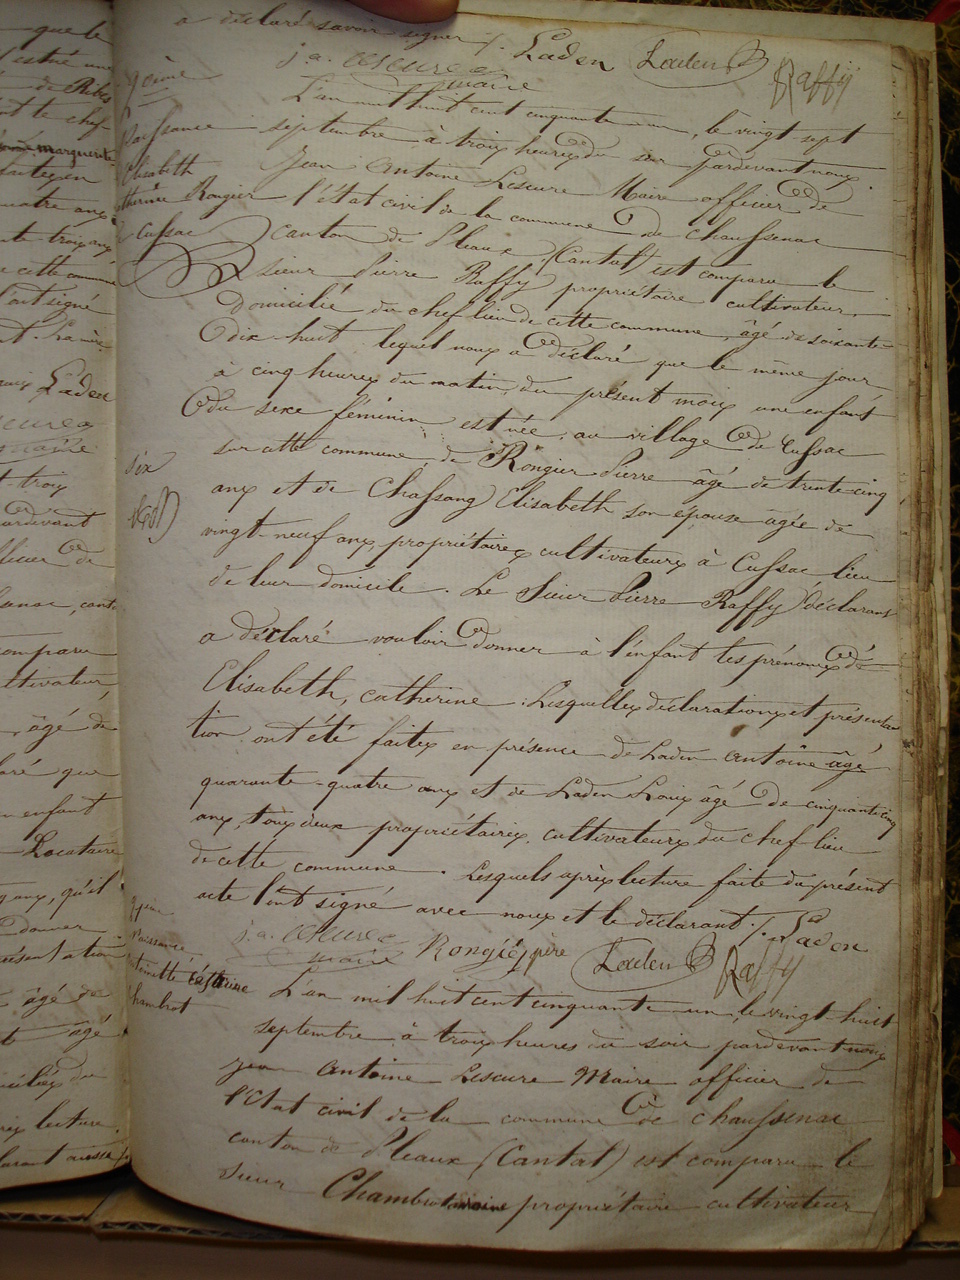 que le
de
marguerite
quatre ans
trois ans
cette commune
l'ont signé
Laden
maire
trois
pardevant
officier de
canton
comparu
cultivateur
âgé de
déclaré que
enfant
Locataire
ans, qu'il
donner
présentation
âgé de
âgé
du
lecture
a déclaré savoir signer ./. Laden Laden Raffÿ
j. a. Lescure
maire
9eme
Naissance
Elisabeth
Catherine Rongier
à Cussac
L'an mil huit cent cinquante un, le vingt sept
septembre, à trois heures du soir pardevant nous
Jean Antoine Lescure Maire officier de
l'état civil de la commune de chaussenac
canton de Pleaux (Cantal) est comparu le
sieur Pierre Raffy propriétaire cultivateur
domicilié du chef lieu de cette commune, âgé de soixante
dix-huit lequel nous a déclaré que le même jour
à cinq heures du matin, du présent mois une enfant
du sexe féminin est née, au village de Cussac
sur cette commune, de Rongier Pierre âgé de trente-cinq
ans et de Chassang Elisabeth son épouse âgée de
vingt-neuf ans, propriétaires cultivateurs à Cussac lieu
de leur domicile. Le Sieur Pierre Raffy déclarant
a déclaré vouloir donner à l'enfant les prénoms de
Elisabeth, Catherine. Lesquelles déclarations et présenta
tion ont été faites en présence de Laden Antoine âgé
quarante-quatre ans et de Laden Louis âgé de cinquante cinq
ans, tous deux propriétaires, cultivateurs du chef lieu
de cette commune. Lesquels après lecture faite du présent
acte l'ont signé avec nous et le déclarant ./. Laden
j. a. Lescure Rongié père Laden Raffy
maire
Naissance
Chambrot
L'an mil huit cent cinquante un, le vingt-huit
septembre à trois heures du soir pardevant nous
Jean Antoine Lescure Maire officier de
l'Etat civil de la commune de chaussenac
canton de Pleaux (Cantal) est comparu le
sieur Chambrot Antoine propriétaire cultivateur